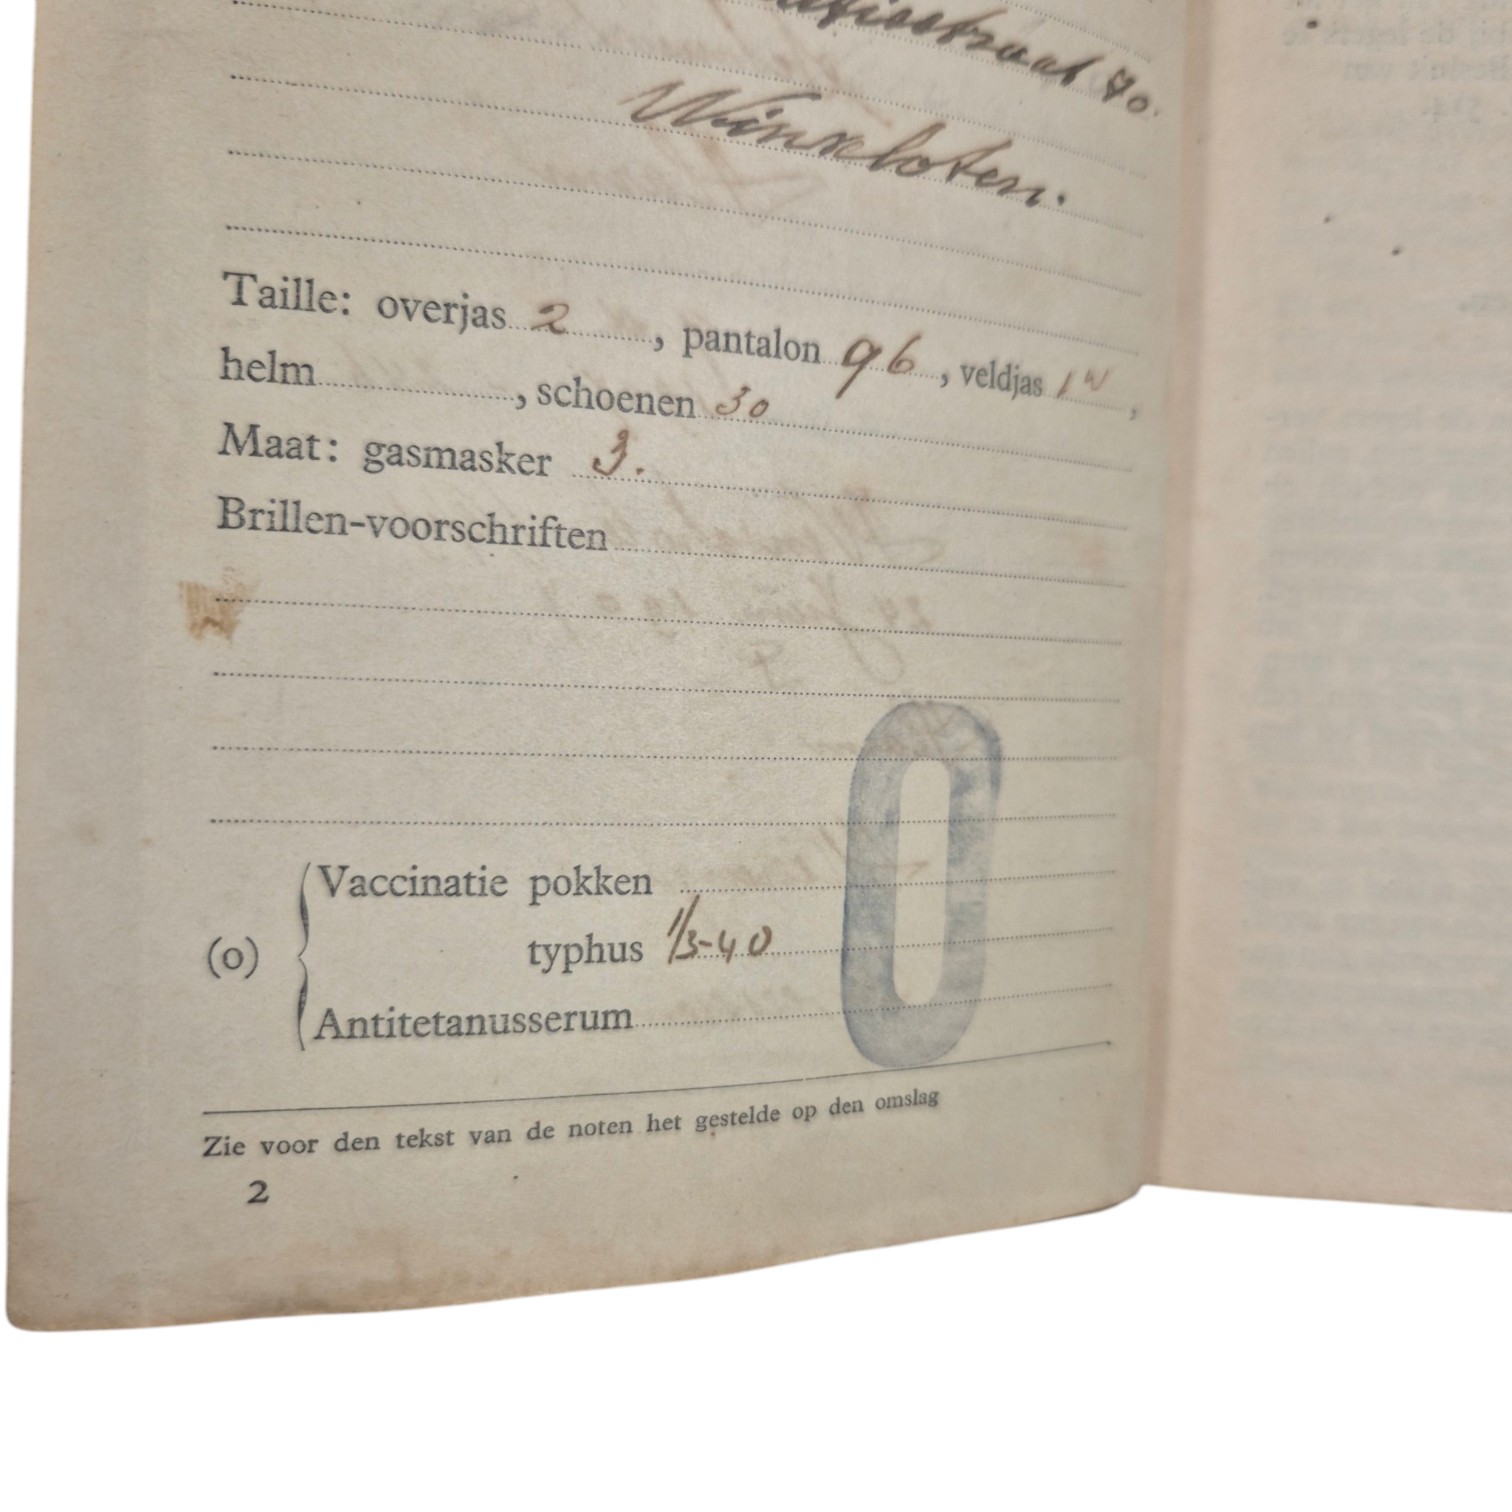 straat 70.
Winxloten.
Taille: overjas 2, pantalon 96, veldjas 1W,
helm, schoenen 30
Maat: gasmasker 3.
Brillen-voorschriften
0
Vaccinatie pokken
(o) typhus 1/3-40
Antitetanusserum
Zie voor den tekst van de noten het gestelde op den omslag
2